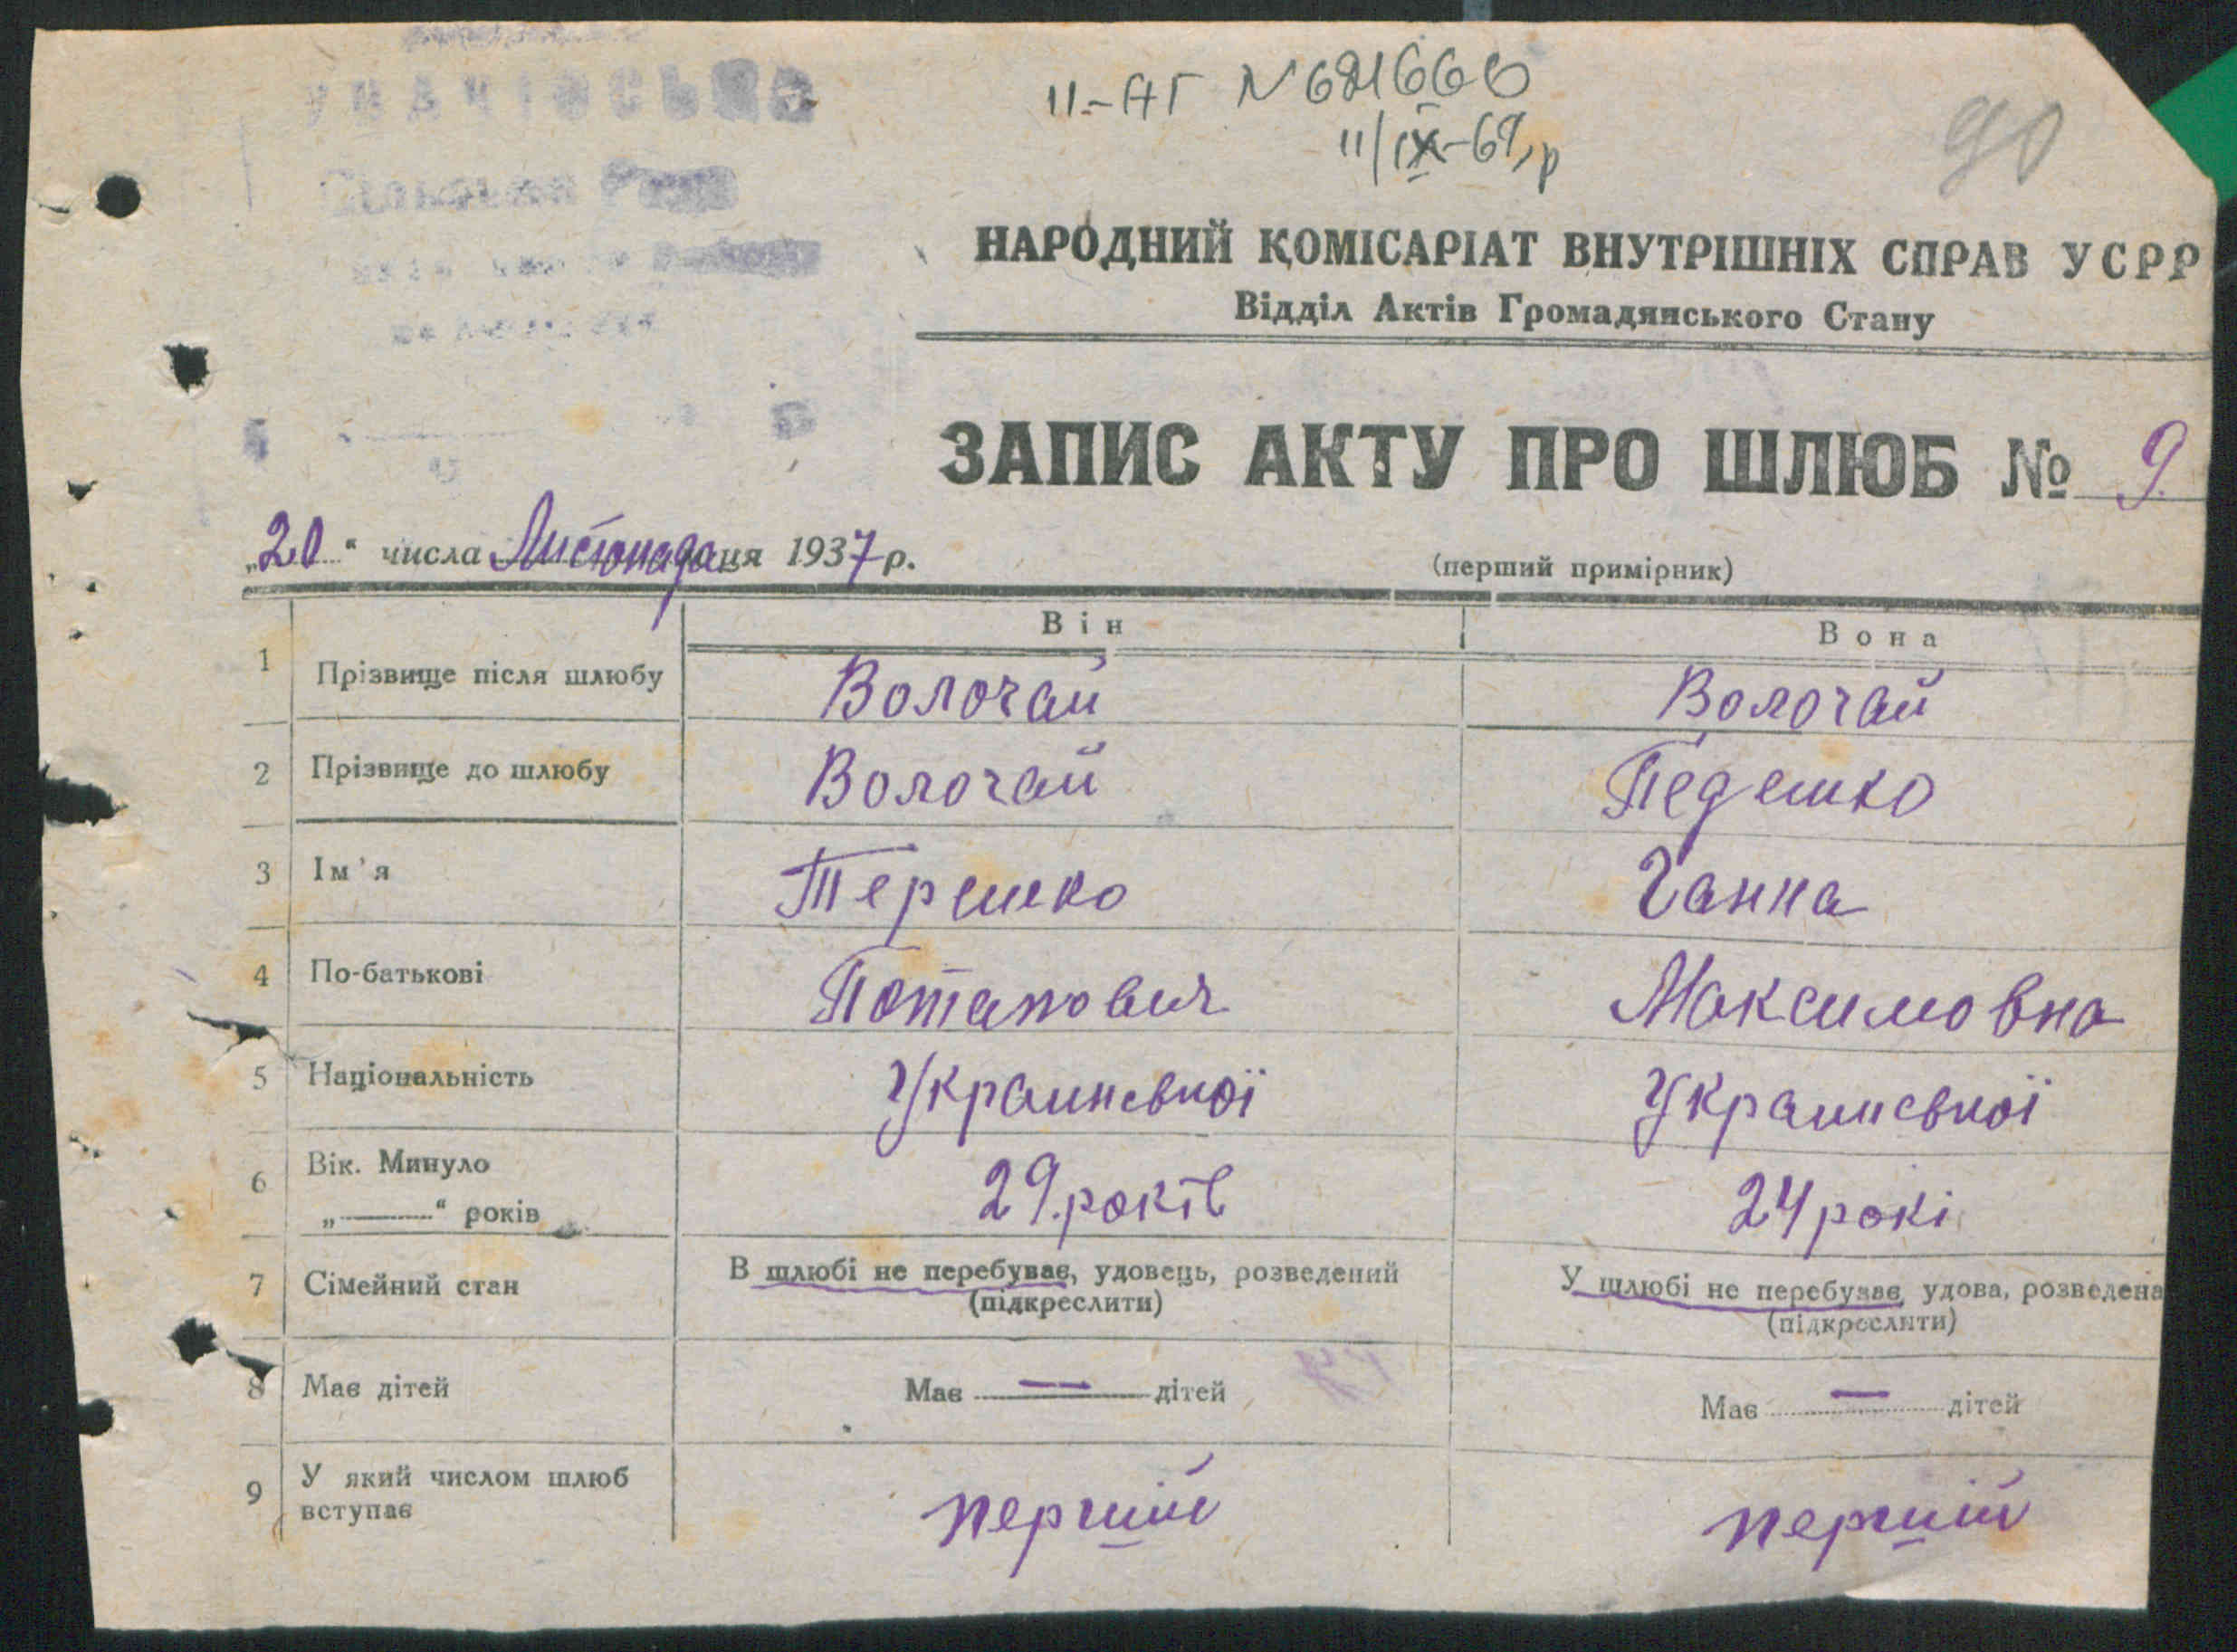 II-АГ N 621660
11/IX-69 р
90
НАРОДНИЙ КОМІСАРІАТ ВНУТРІШНІХ СПРАВ УСРР
Відділ Актів Громадянського Стану
ЗАПИС АКТУ ПРО ШЛЮБ № 9.
„20“ числа Листопада ця 1937 р.
(перший примірник)
Він Вона
1 Прізвище після шлюбу Волочай Волочай
2 Прізвище до шлюбу Волочай Педешко
3 Ім'я Терешко Ганна
4 По-батькові Потапович Максимовна
5 Національність
6 Вік. Минуло 29 років 24 рокі
„——“ років
7 Сімейний стан В шлюбі не перебуває, удовець, розведений У шлюбі не перебуває, удова, розведена
(підкреслити) (підкреслити)
8 Має дітей Має — дітей Має — дітей
9 У який числом шлюб першій першій
вступає